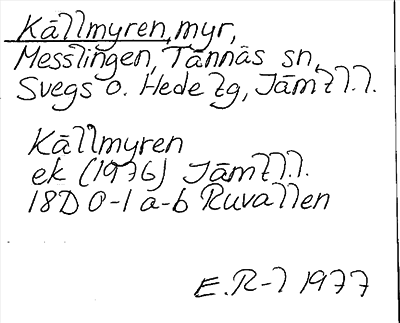 Källmyren, myr,
Messlingen, Tännäs sn,
Svegs o. Hede tg, Jämtl.l.
Källmyren
ek (1976) Jämtl.l.
18D 0-1 a-b Ruvallen
E.R-l 1977